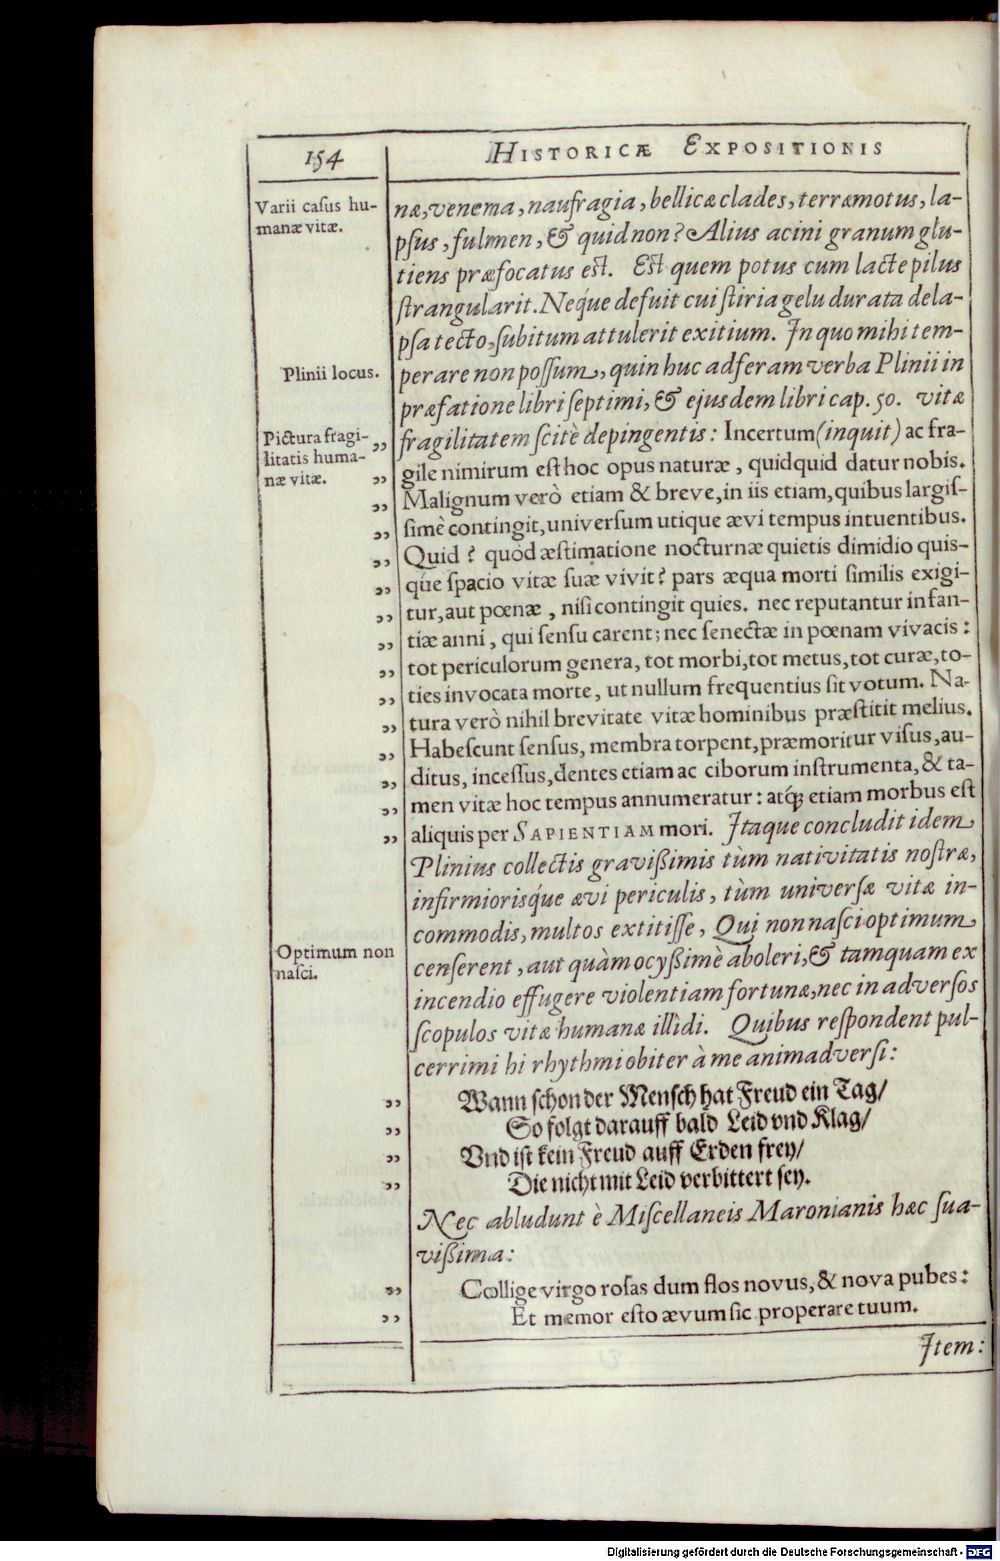 154
HISTORICÆ EXPOSITIONIS
Varii caſus hu-
manæ vitæ.
næ, venema, naufragia, bellicæ clades, terræmotus, la-
pſus, fulmen, & quid non? Alius acini granum glu-
tiens præfocatus eſt. Eſt quem potus cum lacte pilus
ſtrangularit. Neq́ue defuit cui ſtiria gelu durata dela-
pſa tecto, ſubitum attulerit exitium. In quo mihi tem-
Plinii locus.
perare non poſſum, quin huc adferam verba Plinii in
præfatione libri ſeptimi, & ejusdem libri cap. 50. vitæ
Pictura fragi-
litatis huma-
næ vitæ.
„ fragilitatem ſcitè depingentis: Incertum (inquit) ac fra-
„ gile nimirum eſt hoc opus naturæ, quidquid datur nobis.
„ Malignum verò etiam & breve, in iis etiam, quibus largiſ-
„ ſimè contingit, univerſum utique ævi tempus intuentibus.
„ Quid? quòd æſtimatione nocturnæ quietis dimidio quis-
„ q́ue ſpacio vitæ ſuæ vivit? pars æqua morti ſimilis exigi-
„ tur, aut pœnæ, niſi contingit quies. nec reputantur infan-
„ tiæ anni, qui ſenſu carent; nec ſenectæ in pœnam vivacis:
„ tot periculorum genera, tot morbi, tot metus, tot curæ, to-
„ ties invocata morte, ut nullum frequentius ſit votum. Na-
„ tura verò nihil brevitate vitæ hominibus præſtitit melius.
„ Habeſcunt ſenſus, membra torpent, præmoritur viſus, au-
„ ditus, inceſſus, dentes etiam ac ciborum inſtrumenta, & ta-
„ men vitæ hoc tempus annumeratur: atq́; etiam morbus eſt
„ aliquis per SAPIENTIAM mori. Itaque concludit idem
Plinius collectis graviſſimis tùm nativitatis noſtræ,
infirmiorisq́ue ævi periculis, tùm univerſæ vitæ in-
commodis, multos extitiſſe, Qui non naſci optimum
Optimum non
naſci.
cenſerent, aut quàm ocyßimè aboleri, & tamquam ex
incendio effugere violentiam fortunæ, nec in adverſos
ſcopulos vitæ humanæ illìdi. Quibus reſpondent pul-
cerrimi hi rhythmi obiter à me animadverſi:
„ Wann ſchon der Menſch hat Freud ein Tag/
„ So folgt darauff bald Leid vnd Klag/
„ Vnd iſt kein Freud auff Erden frey/
„ Die nicht mit Leid verbittert ſey.
Nec abludunt è Miſcellaneis Maronianis hæc ſua-
vißima:
„ Collige virgo roſas dum flos novus, & nova pubes:
„ Et memor eſto ævum ſic properare tuum.
Item:
Digitalisierung gefördert durch die Deutsche Forschungsgemeinschaft - DFG